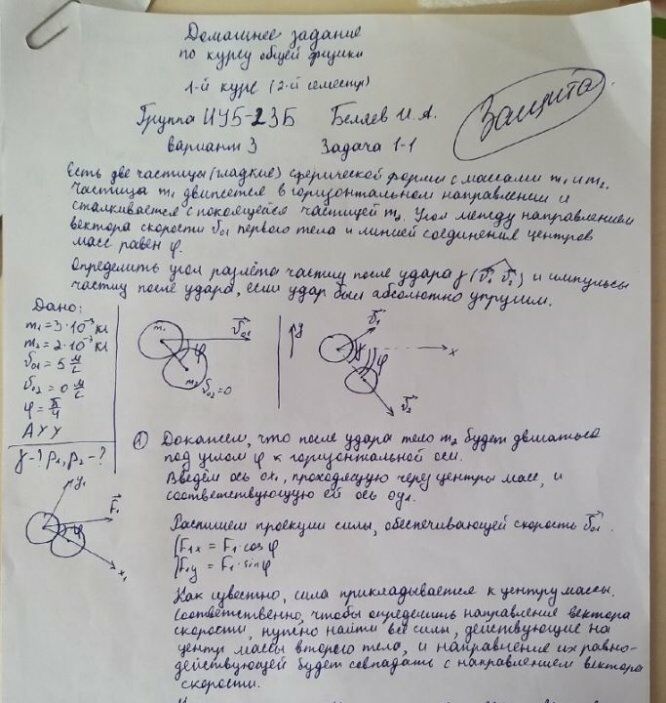 Домашнее задание
по курсу общей физики
1-й курс (2-й семестр)
Группа ИУ5-23Б Беляев И.А.
вариант 3 Задача 1-1
Защита
Есть две частицы (гладкие) сферической формы с массами m₁ и m₂.
Частица m₁ движется в горизонтальном направлении и
сталкивается с покоящейся частицей m₂. Угол между направлением
вектора скорости v₀₁ первого тела и линией соединения центров
масс равен φ.
Определить угол разлёта частиц после удара γ (v₁ v₂) и импульсы
частиц после удара, если удар был абсолютно упругим.
Дано:
m₁ = 3·10⁻³ кг
m₂ = 2·10⁻³ кг
v₀₁ = 5 м/с
v₀₂ = 0 м/с
φ = π/4
АУУ
γ-? p₁, p₂-?
m₁ φ v₀₁
m₂ v₀₂=0
y v₁
γ φ x
v₂
y₁
F₁
φ
x₁
① Докажем, что после удара тело m₂ будет двигаться
под углом φ к горизонтальной оси.
Введём ось ox₁, проходящую через центры масс, и
соответствующую ей ось oy₁.
Распишем проекции силы, обеспечивающей скорость v₀₁.
F₁x = F₁·cosφ
F₁y = F₁·sinφ
Как известно, сила прикладывается к центру массы.
Соответственно, чтобы определить направление вектора
скорости, нужно найти все силы, действующие на
центр массы второго тела, и направление их равно-
действующей будет совпадать с направлением вектора
скорости.